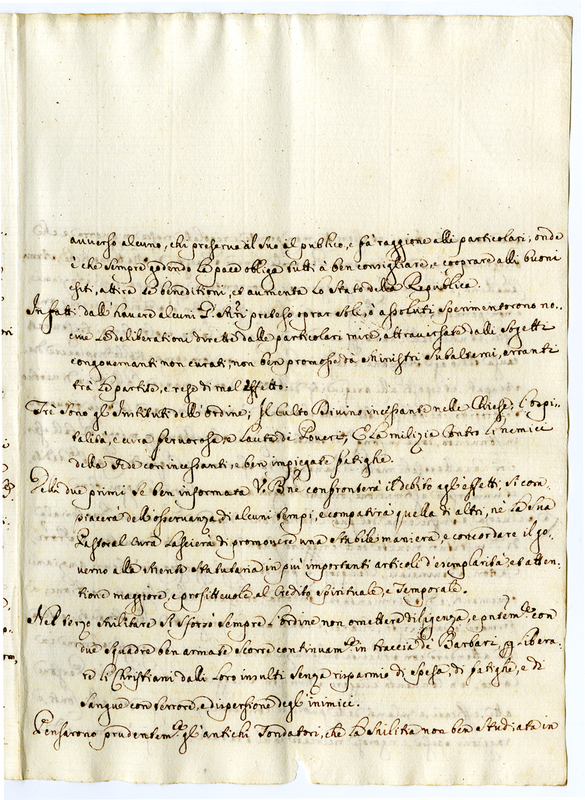 auuerso alcuno, chi preserua il suo al publico, e fà raggione alli particolari; onde
è che sempre godendo la pace obliga tutti à ben consigliare, e cooprare alli buoni
esiti, attire le beneditioni, et aumenta lo Stato della Republica.
In fatti dall' hauere alcuni preteso oprar soli, ò assoluti sperimentorono no-
ciue le deliberationi dirette dalle particolari mire, attrauersate dalli Sogetti
congouernanti non curati, non ben promosse da Ministri subalterni, erranti
trà le partite, e rese di mal effetto.
Trè sono gl' Instituti dell' ordine; Il Culto Diuino incessante nelle Chiese; L'ospi-
talità, e cura feruorosa, e lauta de Poueri; E La milizia contro l'inemici
della Fede con incessanti e ben impiegate fatighe.
Delli due primi se ben informata V. Bne confronterà il debito agl' effetti; Si com-
piacerà dell' osseruanza di alcuni tempi, e compatirà quella di altri, nè la sua
Pastoral cura lascierà di promouere una stabile maniera, e concordare il go-
uerno alla mente statutaria in più importanti articoli d'esemplarità, et atten-
tione maggiore, e profitteuole al Credito spirituale e Temporale.
Nel terzo Militare si sforzò sempre l'ordine non omettere diligenza, e con
due squadre ben armate scorre continuam.te in traccia de Barbari libera-
re li Christiani dalli loro insulti senza risparmio di spesa, di fatighe, e di
sangue con terrore, e dispersione degl' inimici.
Pensarono prudentem.te gl' antichi Fondatori, che la Militia non ben studiata in